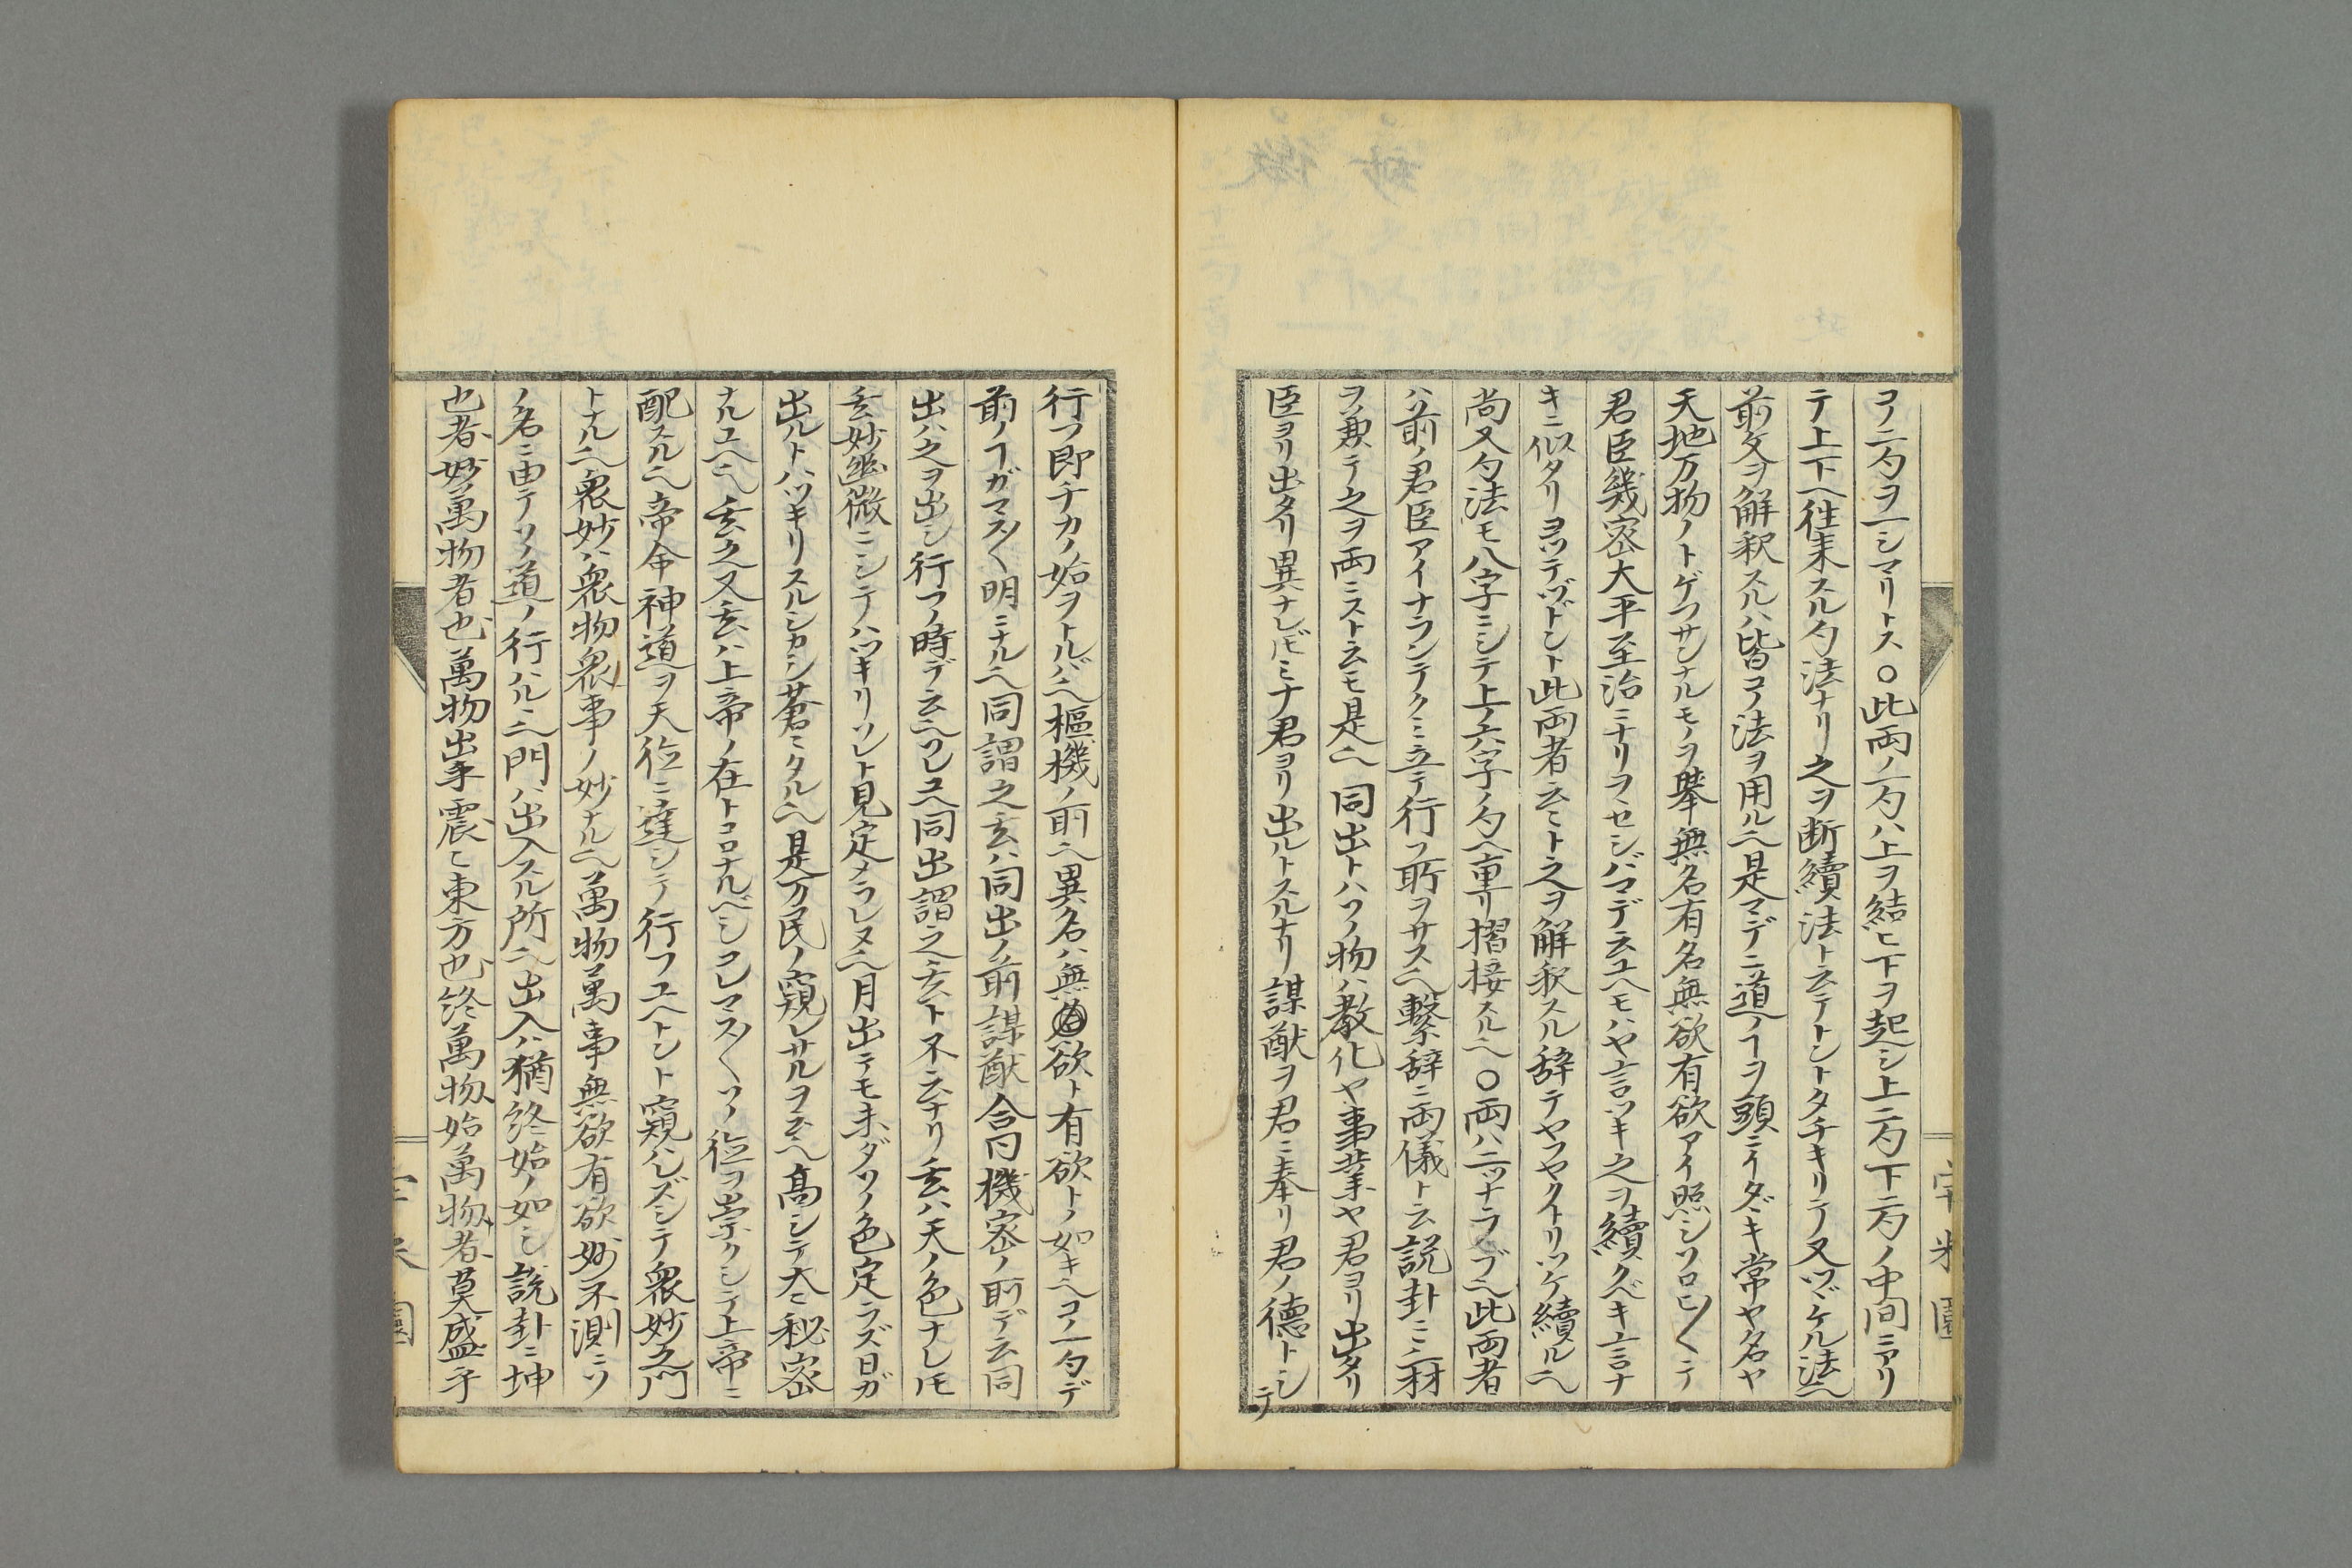 コノ二勺ヲ一シマリトス〇此両ノ一勺ハ上ヲ結ヒ下ヲ起シ上二勺下二勺ノ中間ニアリ
テ上下ヘ往来スル勺法ナリ之ヲ断續法ト云テトントタチキリテ又ツヾケル法也
前文ヲ解釈スルハ皆コノ法ヲ用ル也是マデニ道ノヿヲ頭ニイタヾキ常ヤ名ヤ
天地万物ノトゲフサンナルモノヲ擧無名有名無欲有欲アイ照シソロヒ〱テ
君臣幾密大平至治ニナリヲヽセシバマデ云ユヘモハヤ言ツキ之ヲ續クベキ言ナ
キニ似タリヨツテヅドント此両者云〻ト之ヲ解釈スル辞テヤフヤクトリツケ續ル也
尚又勺法モ八字ニシテ上ノ六字ノ勺ヘ重リ摺接スル也〇両ハ二ツナラブ也此両者
ハ前ノ君臣アイナランテクミ立テ行フ所ヲサス也繋辞ニ両儀ト云説卦ニ三材
ヲ兼テ之ヲ両ニストモ云モ是也同出トハソノ物ハ教化ヤ事業ヤ君ヨリ出タリ
臣ヨリ出タリ異ナレ𪜈ミナ君ヨリ出ルトスルナリ謀猷ヲ君ニ奉リ君ノ德トシテ
行フ即チカノ始ヲトルバ也樞機ノ前也異名ハ無欲ト有欲トノ如キ也コノ一勺デ
前ノヿガマス〱明ニナル也同謂之玄ハ同出ノ前謀猷合同機密ノ前デ云同
出ハ之ヲ出シ行フノ時デ云也ソレユヘ同出謂之玄ト不云ナリ玄ハ天ノ色ナレ𪜈
玄妙幽微ニシテハツキリソレト見定メラレヌ也月出テモ未ダソノ色定ラズ日ガ
出ルトハツキリスルシカシ蒼〻タル也是万民ノ窺レサルヲ云也高シテ大〻秘密
ナルユヘ也玄之又玄ハ上帝ノ在トコロナルベシコレマス〱ソノ位ヲ崇クシテ上帝ニ
配スル也帝命神道ヲ天位ニ達シテ行フユヘトント窺ハレズシテ衆妙之門
トナル也衆妙ハ衆物衆事ノ妙ナル也萬物萬事無欲有欲妙不測ニソ
ノ名ニ由テソノ道ノ行ハル也門ハ出入スル所也出入ハ猶終始ノ如シ說卦ニ坤
也者妙萬物者也萬物出乎震〻東方也終萬物始萬物者莫盛乎
園